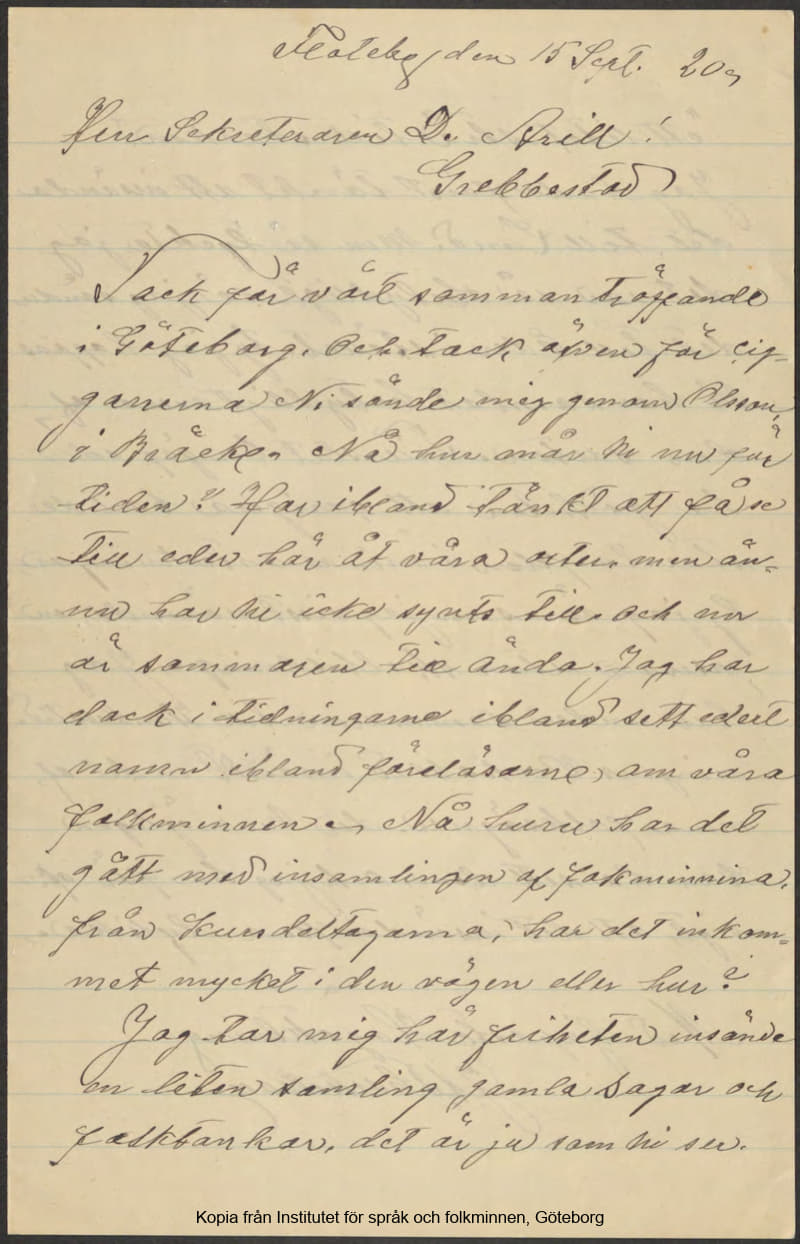 Floteby den 15 Sept. 20,
Herr Sekreteraren D. Arill!
Grebbestad
Tack för vårt sammanträffande
i Göteborg. Och tack även för cig-
garrerna Ni sände mig genom Olsson,
i Bräcke, Nå hur mår Ni nu för
tiden? Har ibland tänkt att få se
till eder här åt våra orter, men än-
nu har Ni icke synts till, och nu
är sommaren till ända. Jag har
dock i tidningarne ibland sett edert
namn ibland föreläsarne, om våra
folkminnen, Nå huru har det
gått med insamlingen af fokminnina,
från kursdeltagarna, har det inkom-
met mycket i den vägen eller hur?
Jag tar mig här friheten insände
en liten samling gamla Sagor och
folktankar, det är ju som Ni ser.
Kopia från Institutet för språk och folkminnen, Göteborg